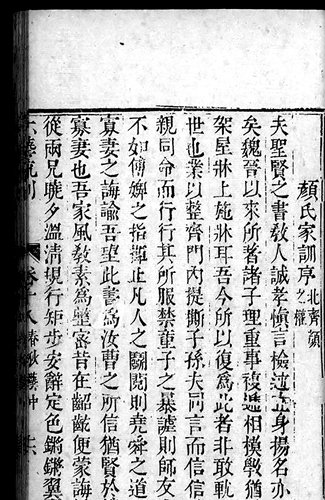 顏氏家訓序
北齊顏
之推
夫聖賢之書敎人誠孝愼言檢迹立身揚名亦
矣魏晉以來所著諸子理重事複遞相模斆猶
架屋牀上施牀耳吾今所以復爲此者非敢軌
世也業以整齊門內提撕子孫夫同言而信信
親同命而行行其所服禁童子之暴謔則師友
不如傅婢之指揮止凡人之鬭鬩則堯舜之道
寡妻之誨諭吾望此書爲汝曹之所信猶賢於
寡妻也吾家風敎素爲整密昔在齠齔便蒙誨
從兩兄曉夕溫凊規行矩步安辭定色鏘鏘翼
卷十八